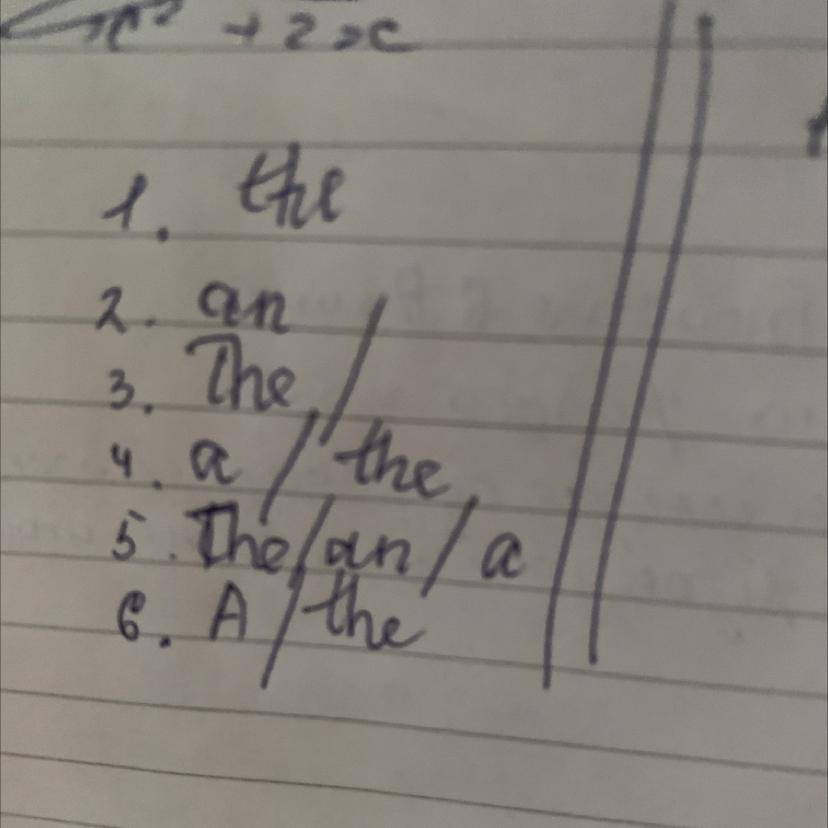 + 2x
1. the
2. an
3. The /
4. a / the
5. The / an / a
6. A / the